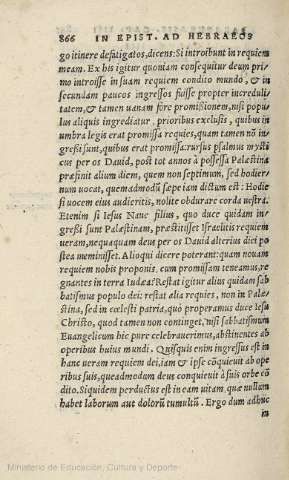 866 IN EPIST. AD HEBRAEOS
go itinere defatigatos, dicens: Si introibunt in requiem
meam. Ex his igitur quoniam consequitur deum pri
mo introisse in suam requiem condito mundo, & in
secundam paucos ingressos fuisse propter increduli
tatem, & tamen uanam fore promissionem, nisi popu
lus aliquis ingrediatur, prioribus exclusis, quibus in
umbra legis erat promissa requies, quam tamen nō in
gressi sunt, quibus erat promissa: rursus psalmus mysti
cus per os Dauid, post tot annos à possessa Palæstina
præfinit alium diem, quem non septimum, sed hodier
num uocat, quemadmodū sæpe iam dictum est: Hodie
si uocem eius audieritis, nolite obdurare corda uestra.
Etenim si Iesus Naue filius, quo duce quidam in-
gressi sunt Palæstinam, præstitisset Israelitis requiem
ueram, nequaquam deus per os Dauid alterius diei po
stea meminisset. Alioqui dicere poterant: quam nouam
requiem nobis proponis, cum promissam teneamus, re
gnantes in terra Iudæa? Restat igitur alius quidam sab
batismus populo dei: restat alia requies, non in Palæ
stina, sed in cœlesti patria, quò properamus duce Iesu
Christo, quod tamen non continget, nisi sabbatismum
Euangelicum hic pure celebrauerimus, abstinentes ab
operibus huius mundi. Quisquis enim ingressus est in
hanc ueram requiem dei, iam & ipse cōquieuit ab ope
ribus suis, quēadmodum deus conquieuit à suis orbe cō
dito. Siquidem perductus est in eam uitam, quæ nullum
habet laborum aut dolorū tumultū. Ergo dum adhuc
in
Ministerio de Educación, Cultura y Deporte